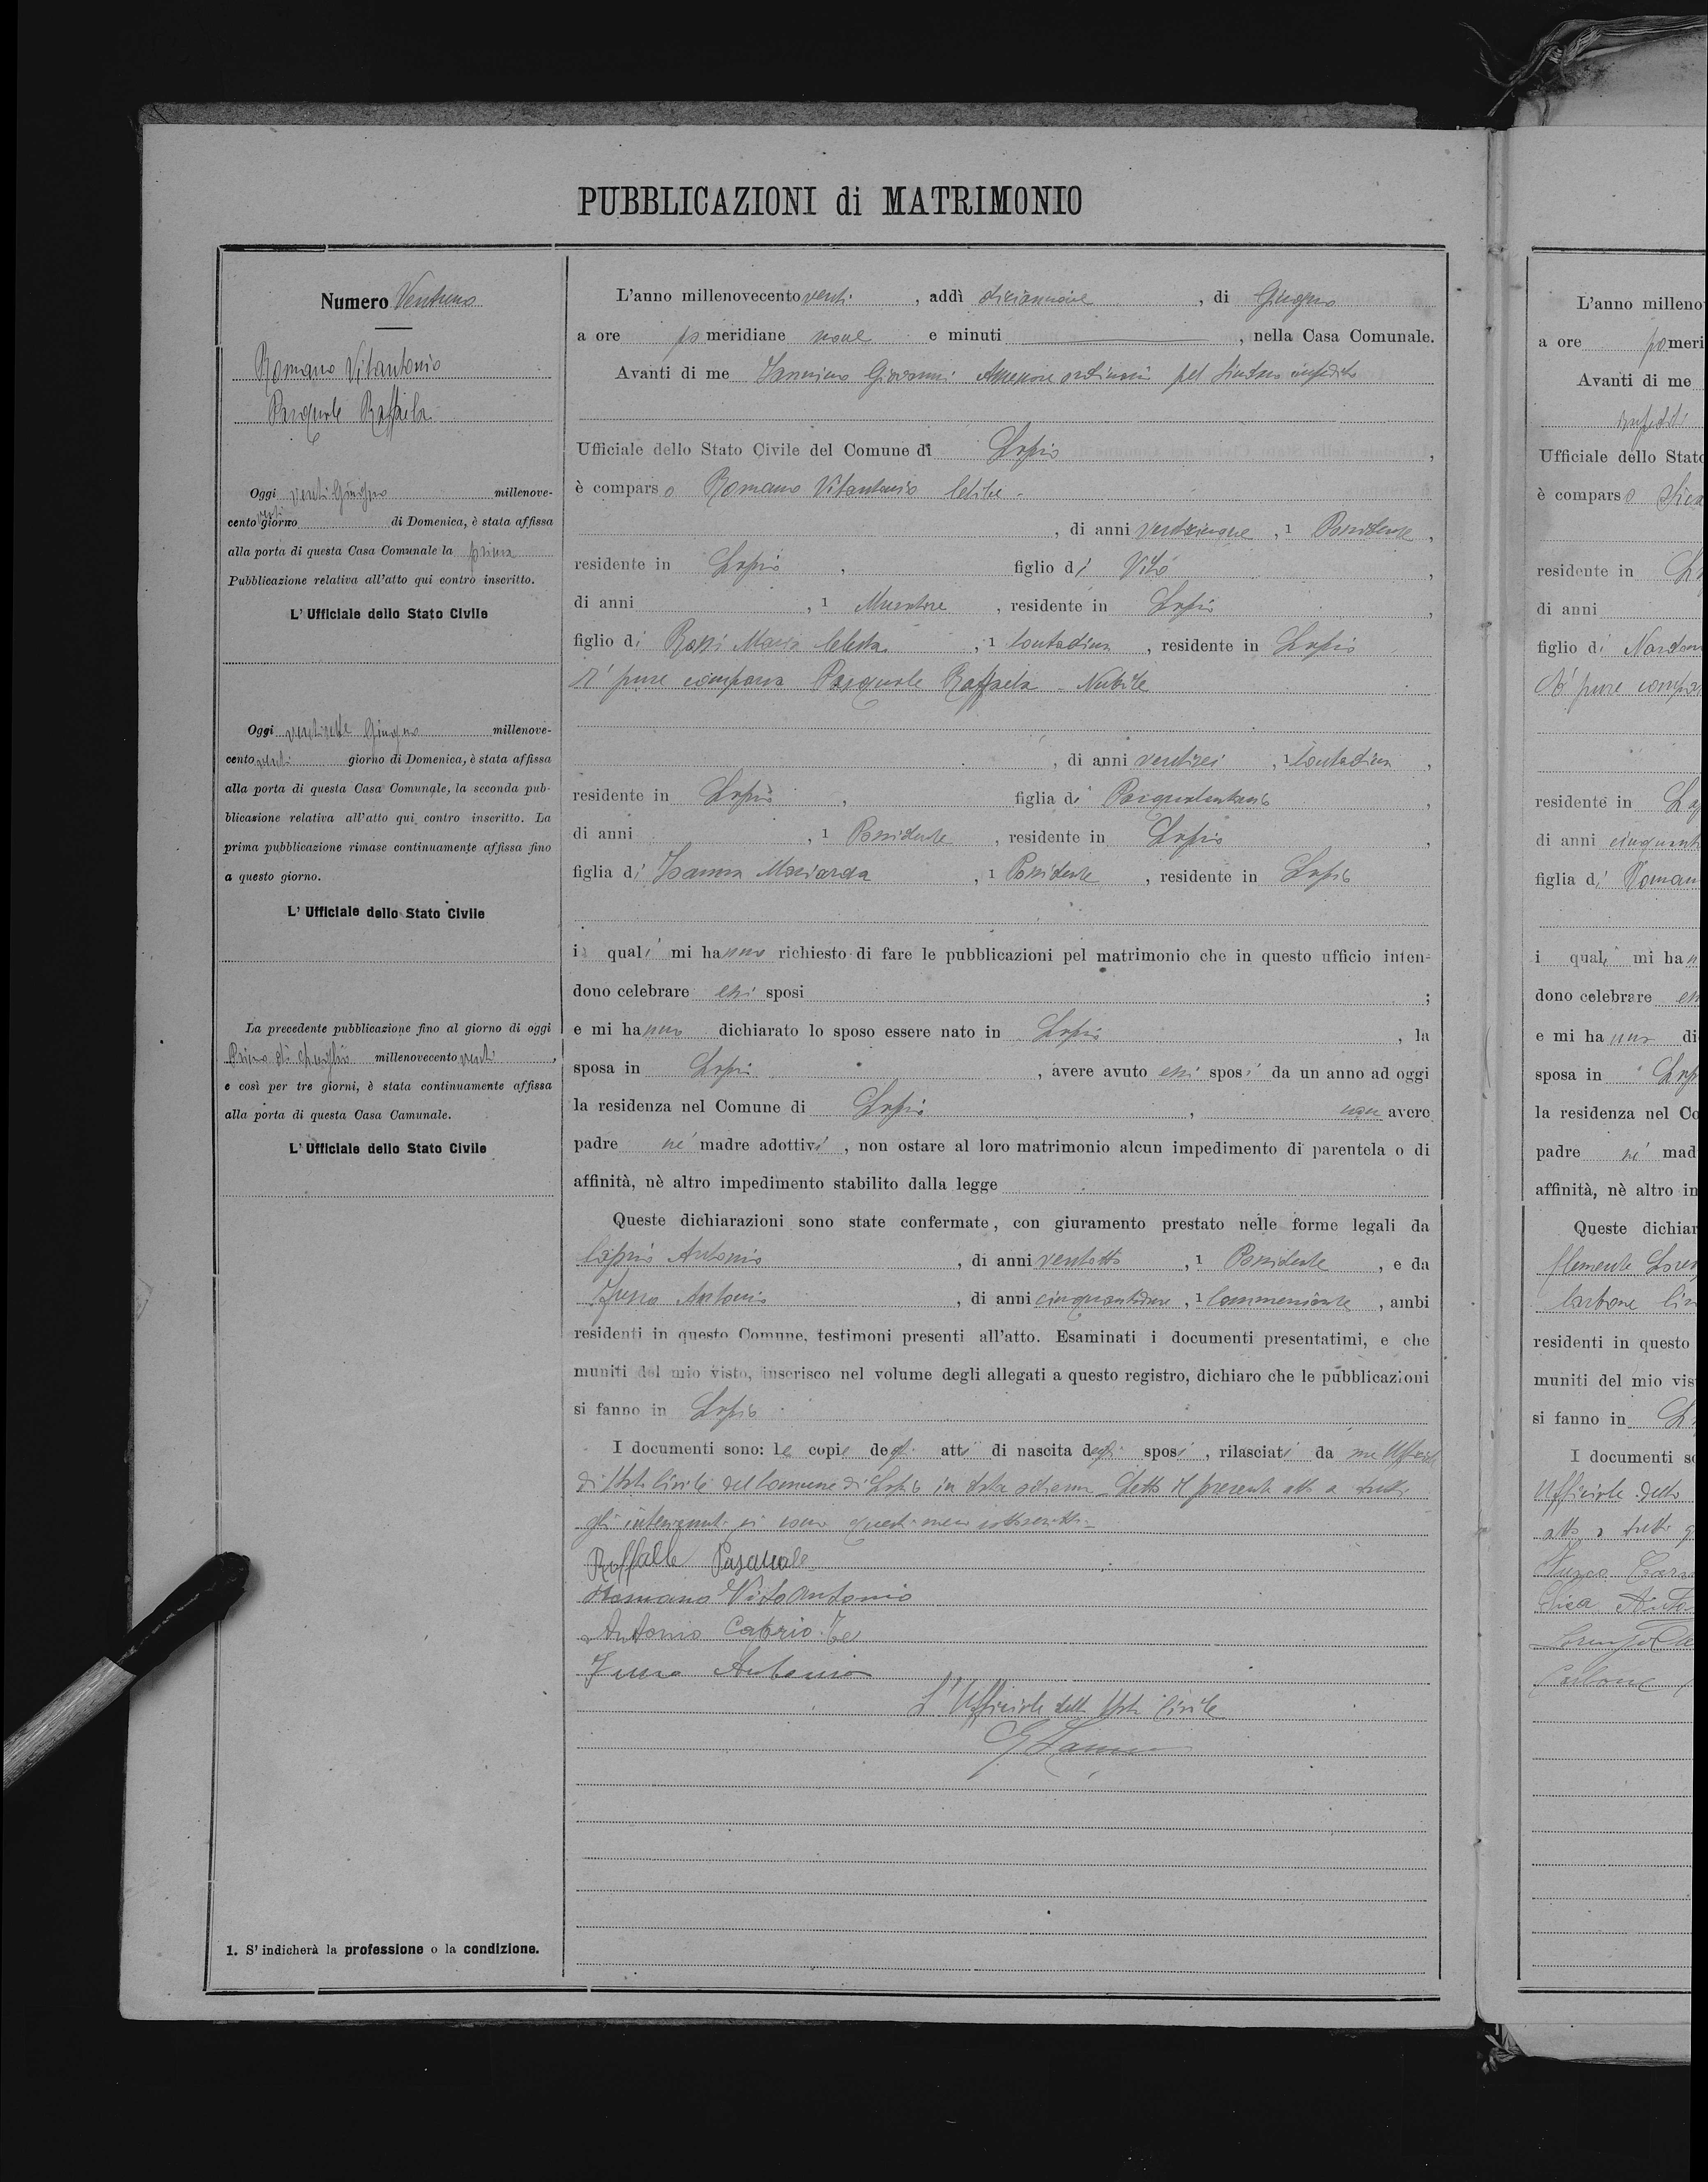 PUBBLICAZIONI di MATRIMONIO
Numero Ventuno
Romano Vitantonio
Pasquale Raffaela
Oggi venti Giugno millenove-
cento venti giorno di Domenica, è stata affissa
alla porta di questa Casa Comunale la prima
Pubblicazione relativa all'atto qui contro inscritto.
L' Ufficiale dello Stato Civile
Oggi ventisette Giugno millenove-
cento venti giorno di Domenica, è stata affissa
alla porta di questa Casa Comunale, la seconda pub-
blicazione relativa all'atto qui contro inscritto. La
prima pubblicazione rimase continuamente affissa fino
a questo giorno.
L' Ufficiale dello Stato Civile
La precedente pubblicazione fino al giorno di oggi
Primo di Luglio millenovecento venti,
e così per tre giorni, è stata continuamente affissa
alla porta di questa Casa Camunale.
L' Ufficiale dello Stato Civile
1. S' indicherà la professione o la condizione.
L'anno millenovecento venti, addì diciannove, di Giugno
a ore pomeridiane nove e minuti, nella Casa Comunale.
Avanti di me Iannino Giovanni Assessore ordinario pel Sindaco impedito
Ufficiale dello Stato Civile del Comune di Lapio,
è comparso Romano Vitantonio Celibe -
, di anni venticinque, 1 Possidente,
residente in Lapio, figlio di Vito,
di anni, 1 Muratore, residente in Lapio,
figlio di Rossi Maria Celesta, 1 Contadina, residente in Lapio
E' pure comparsa Pasquale Raffaela - Nubile
, di anni ventisei, 1 Contadina,
residente in Lapio, figlia di Pasqualantonio,
di anni, 1 Possidente, residente in Lapio,
figlia di, 1 Possidente, residente in Lapio
i quali mi hanno richiesto di fare le pubblicazioni pel matrimonio che in questo ufficio inten-
dono celebrare essi sposi;
e mi hanno dichiarato lo sposo essere nato in Lapio, la
sposa in Lapio, avere avuto essi sposi da un anno ad oggi
la residenza nel Comune di Lapio, non avere
padre nè madre adottivi, non ostare al loro matrimonio alcun impedimento di parentela o di
affinità, nè altro impedimento stabilito dalla legge
Queste dichiarazioni sono state confermate, con giuramento prestato nelle forme legali da
Caprio Antonio, di anni ventotto, 1 Possidente, e da
Antonio, di anni cinquantadue, 1 Commerciante, ambi
residenti in questo Comune, testimoni presenti all'atto. Esaminati i documenti presentatimi, e che
muniti del mio visto, inserisco nel volume degli allegati a questo registro, dichiaro che le pubblicazioni
si fanno in Lapio
I documenti sono: Le copie degli atti di nascita degli sposi, rilasciati da me Ufficiale
di Stato Civile del Comune di Lapio in data odierna - Letto il presente atto a tutti
gli intervenuti si sono questi meco sottoscritti -
Raffaele Pasquale
Romano Vito Antonio
Antonio Caprio
Antonio
L'Ufficiale dello Stato Civile
L'anno milleno
a ore pomeri
Avanti di me
impedito
Ufficiale dello Stato
è comparso
residente in
di anni
figlio di
E' pure compar
residente in
di anni cinquant
figlia di Roman
i quali mi han
dono celebrare
e mi hanno di
sposa in
la residenza nel Co
padre nè mad
affinità, nè altro in
Queste dichiar
Clemente
Carbone
residenti in questo
muniti del mio vis
si fanno in
I documenti so
Ufficiale dello
atto a tutti